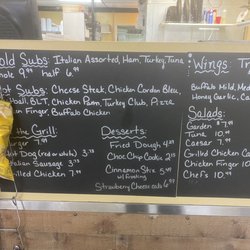 old Subs: Italian Assorted, Ham, Turkey, Tuna
hole 9.99 half 6.99
ot Subs: Cheese Steak, Chicken Cordon Bleu,
ball, BLT, Chicken Parm, Turkey Club, Pizza
en Finger, Buffalo Chicken
the Grill:
urger 7.99
Hot Dog (red or white) 3.75
Italian Sausage 3.75
rilled Chicken 7.99
Desserts:
Fried Dough 4.99
Choc Chip Cookie 2.75
Cinnamon Stix 5.99
w/ frosting
Strawberry Cheese cake 6.99
Wings: Tr
Buffalo Mild, Med
Honey Garlic, Ca
Salads:
Garden 7.99
Tuna 10.99
Caesar 7.99
Grilled Chicken Ca
Chicken Finger 10
Chef's 10.99